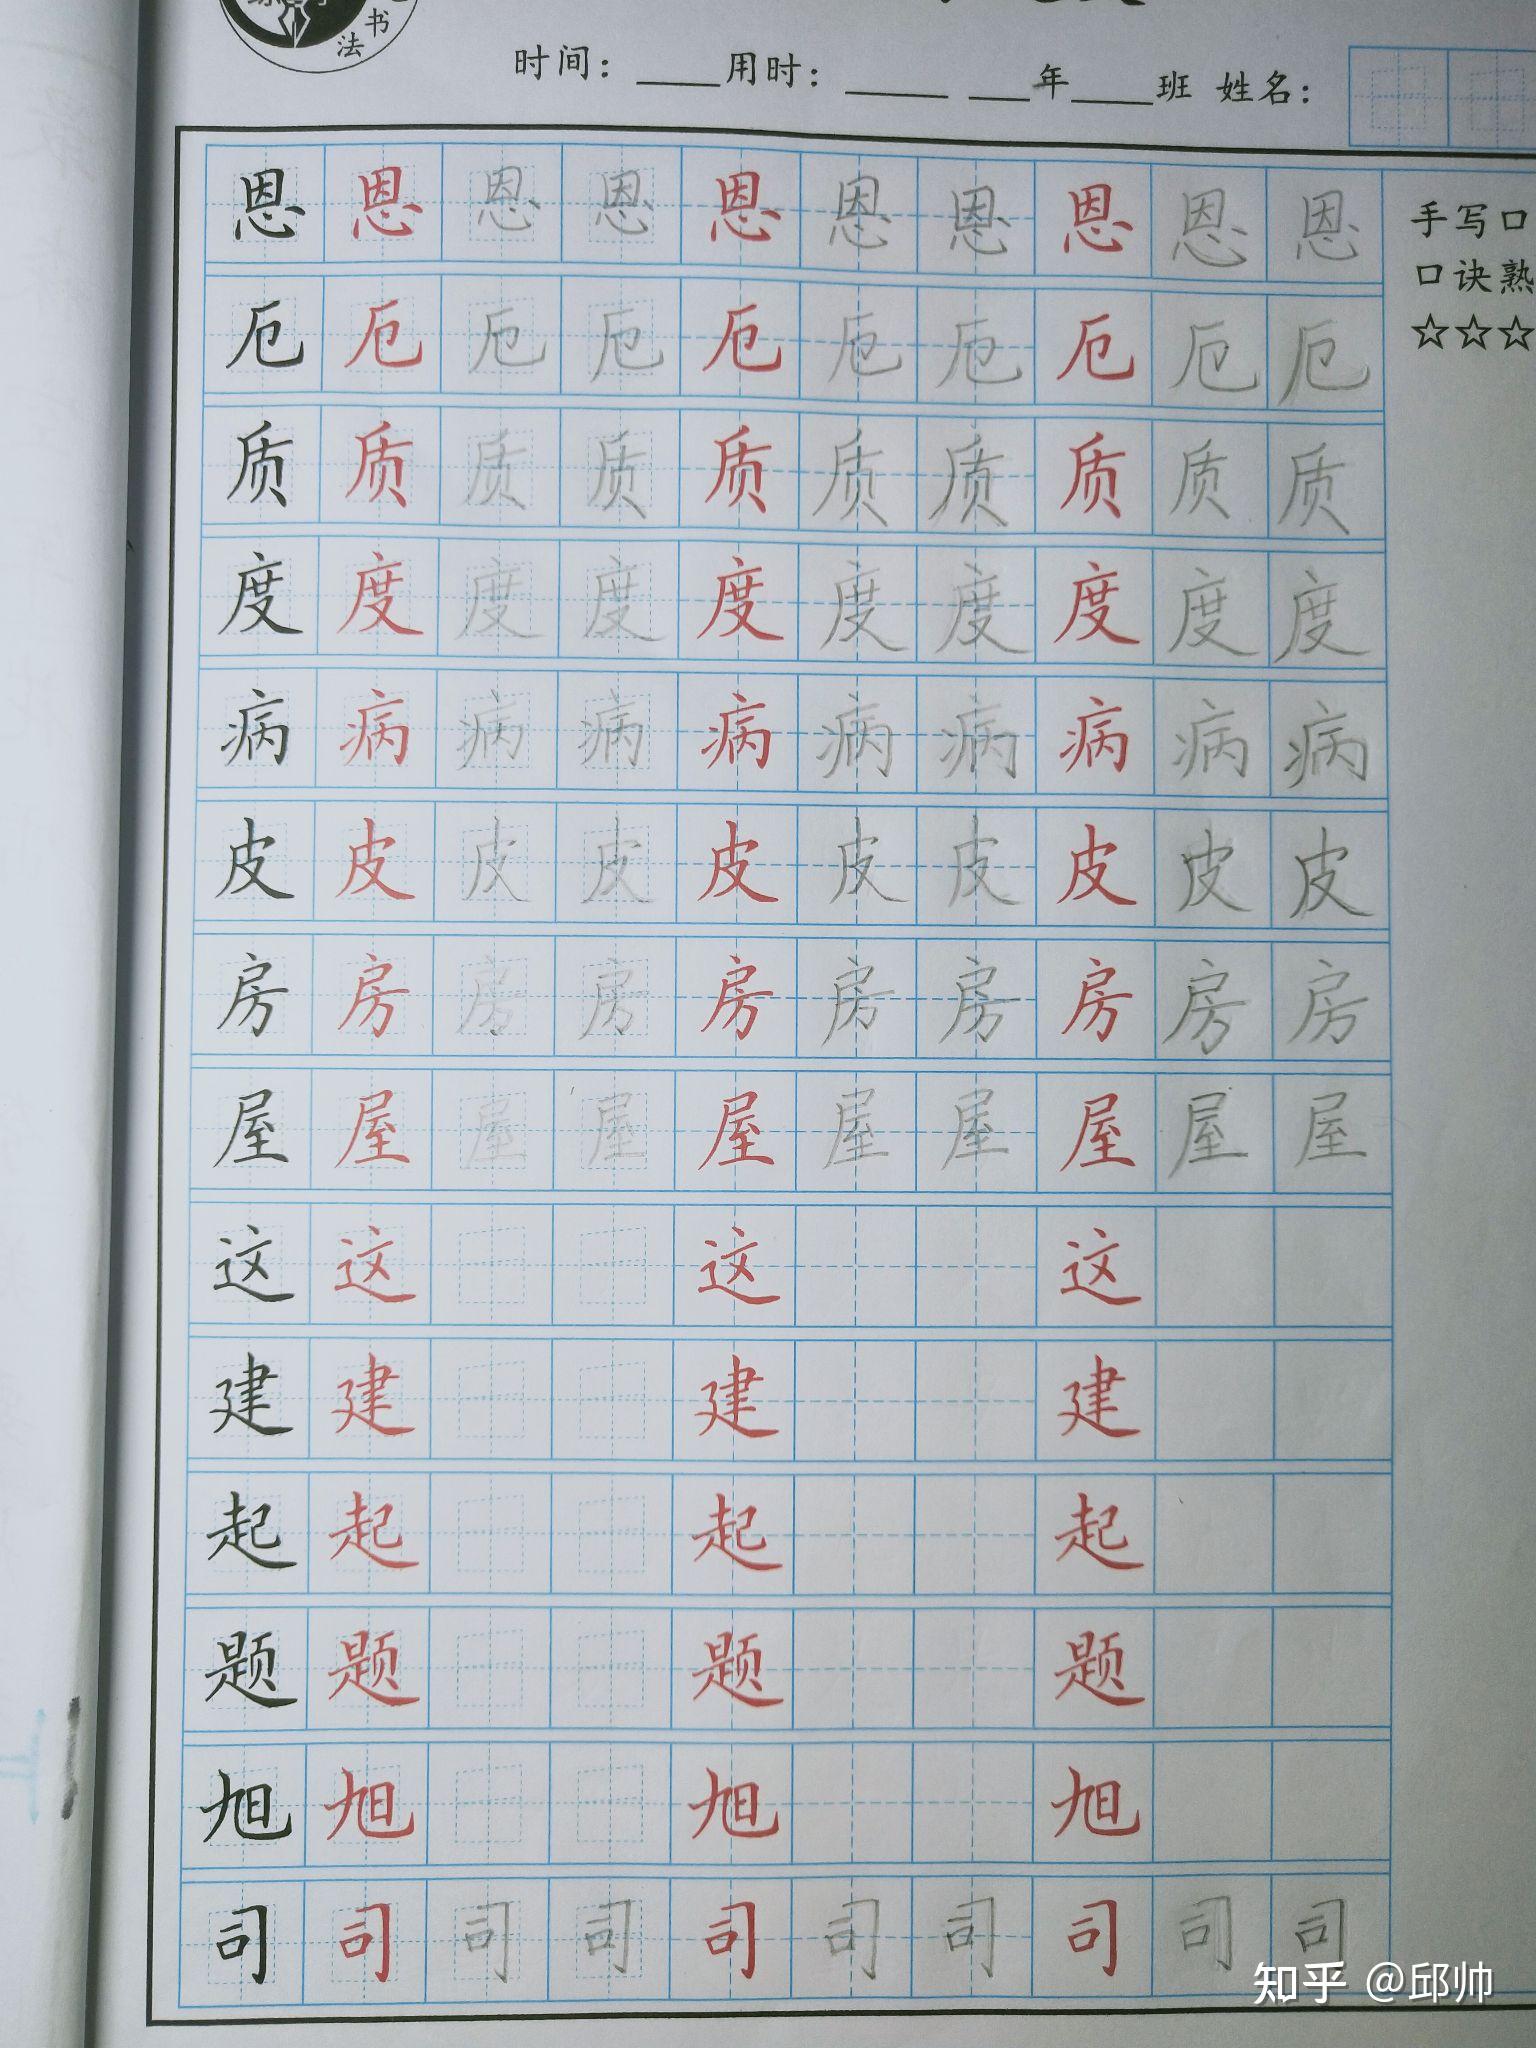 法书
时间：____用时：_____ ___年____班 姓名：
恩恩恩恩恩恩恩恩恩恩
厄厄厄厄厄厄厄厄厄厄
质质质质质质质质质质
度度度度度度度度度度
病病病病病病病病病病
皮皮皮皮皮皮皮皮皮皮
房房房房房房房房房房
屋屋屋屋屋屋屋屋屋屋
这这这这
建建建建
起起起起
题题题题
旭旭旭旭
司司司司司司司司司司
手写口
口诀熟
☆☆☆
知乎 @邱帅